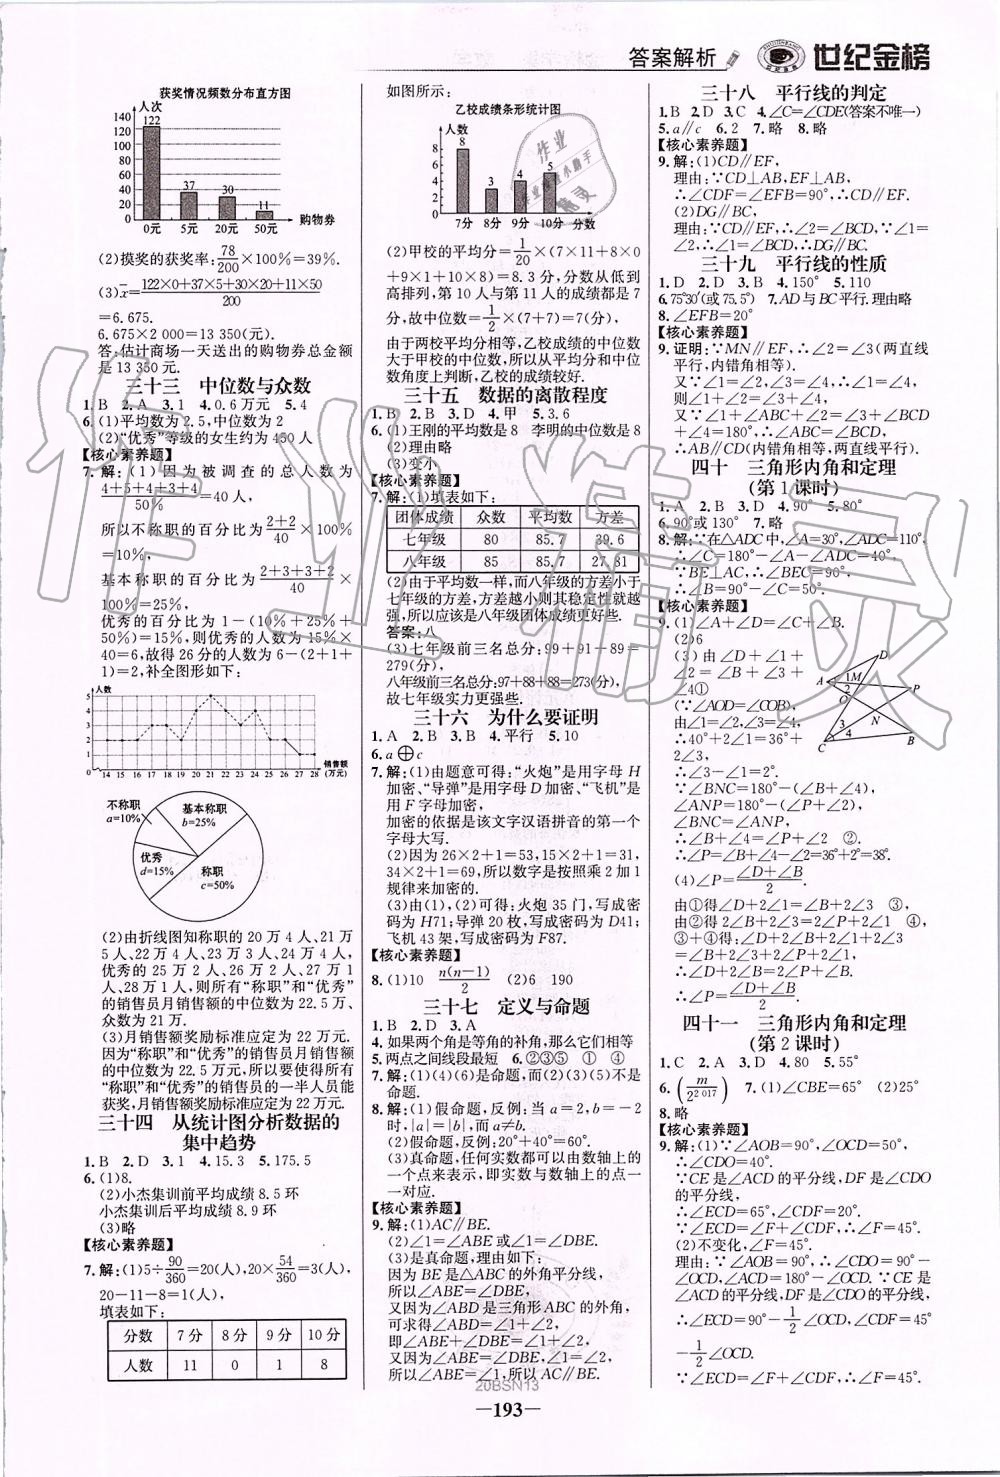 答案解析
世纪金榜
获奖情况频数分布直方图
人次
140
120
100
80
60
40
20
0
122
37
30
11
0元 5元 20元 50元
购物券
(2)摸奖的获奖率:78/200×100%=39%.
(3)x̄=(122×0+37×5+30×20+11×50)/200
=6.675.
6.675×2 000=13 350(元).
答:估计商场一天送出的购物券总金额
是13 350元.
三十三 中位数与众数
1.B 2.A 3.1 4.0.6万元 5.4
6.(1)平均数为2.5,中位数为2
(2)“优秀”等级的女生约为450人
【核心素养题】
7.解:(1)因为被调查的总人数为
(4+5+4+3+4)/50%=40(人),
所以不称职的百分比为(2+2)/40×100%
=10%,
基本称职的百分比为(2+3+3+2)/40
×100%=25%,
优秀的百分比为1-(10%+25%+
50%)=15%,则优秀的人数为15%×
40=6,故得26分的人数为6-(2+1+
1)=2,补全图形如下:
人数
5
4
3
2
1
0
14 15 16 17 18 19 20 21 22 23 24 25 26 27 28
销售额
(万元)
不称职
a=10%
基本称职
b=25%
优秀
d=15%
称职
c=50%
(2)由折线图知称职的20万4人、21万
5人、22万4人、23万3人、24万4人,
优秀的25万2人、26万2人、27万1
人、28万1人,则所有“称职”和“优秀”
的销售员月销售额的中位数为22.5万、
众数为21万.
(3)月销售额奖励标准应定为22万元.
因为“称职”和“优秀”的销售员月销售额
的中位数为22.5万元,所以要使得所有
“称职”和“优秀”的销售员的一半人员能
获奖,月销售额奖励标准应定为22万元.
三十四 从统计图分析数据的
集中趋势
1.B 2.D 3.1 4.15.3 5.175.5
6.(1)8.
(2)小杰集训前平均成绩8.5环
小杰集训后平均成绩8.9环
(3)略
【核心素养题】
7.解:(1)5÷90/360=20(人),20×54/360=3(人),
20-11-8=1(人),
填表如下:
分数 7分 8分 9分 10分
人数 11 0 1 8
如图所示:
乙校成绩条形统计图
人数
8
6
4
2
0
8
3
4
5
7分 8分 9分 10分 分数
(2)甲校的平均分=1/20×(7×11+8×0
+9×1+10×8)=8.3分,分数从低到
高排列,第10人与第11人的成绩都是7
分,故中位数=1/2×(7+7)=7(分),
由于两校平均分相等,乙校成绩的中位数
大于甲校的中位数,所以从平均分和中位
数角度上判断,乙校的成绩较好.
三十五 数据的离散程度
1.B 2.B 3.D 4.甲 5.3.6
6.(1)王刚的平均数是8 李明的中位数是8
(2)理由略
(3)变小
【核心素养题】
7.解:(1)填表如下:
团体成绩 众数 平均数 方差
七年级 80 85.7 39.6
八年级 85 85.7 27.81
(2)由于平均数一样,而八年级的方差小于
七年级的方差,方差越小则其稳定性就越
强,所以应该是八年级团体成绩更好些.
答案:八
(3)七年级前三名总分:99+91+89=
279(分),
八年级前三名总分:97+88+88=273(分),
故七年级实力更强些.
三十六 为什么要证明
1.A 2.B 3.B 4.平行 5.10
6.a⊕c
7.解:(1)由题意可得:“火炮”是用字母H
加密、“导弹”是用字母D加密、“飞机”是
用F字母加密,
加密的依据是该文字汉语拼音的第一个
字母大写.
(2)因为26×2+1=53,15×2+1=31,
34×2+1=69,所以数字是按照乘2加1
规律来加密的.
(3)由(1),(2)可得:火炮35门,写成密
码为H71;导弹20枚,写成密码为D41;
飞机43架,写成密码为F87.
【核心素养题】
8.(1)10 n(n-1)/2 (2)6 190
三十七 定义与命题
1.B 2.D 3.A
4.如果两个角是等角的补角,那么它们相等
5.两点之间线段最短 6.②③⑤ ① ④
7.解:(1)(4)(6)是命题,而(2)(3)(5)不是
命题.
8.解:(1)假命题,反例:当a=2,b=-2
时,|a|=|b|,而a≠b.
(2)假命题,反例:20°+50°=70°.
(3)真命题,任何实数都可以由数轴上的一
个点来表示,即实数与数轴上的点一
一对应.
【核心素养题】
9.解:(1)AC∥BE.
(2)∠1=∠ABE或∠1=∠DBE.
(3)是真命题,理由如下:
因为BE是△ABC的外角平分线,
所以∠ABE=∠DBE,
又因为∠ABD是三角形ABC的外角,
可求得∠ABD=∠1+∠2,
即∠ABE+∠DBE=∠1+∠2,
又因为∠ABE=∠DBE,∠1=∠2,
所以∠ABE=∠1,所以AC∥BE.
三十八 平行线的判定
1.B 2.D 3.C 4.∠C=∠CDE(答案不唯一)
5.a∥c 6.2 7.略 8.略
【核心素养题】
9.解:(1)CD∥EF,
理由:∵CD⊥AB,EF⊥AB,
∴∠CDF=∠EFB=90°,∴CD∥EF.
(2)DG∥BC,
理由:∵CD∥EF,∴∠2=∠BCD,∵∠1=
∠2,∴∠1=∠BCD,∴DG∥BC.
三十九 平行线的性质
1.D 2.D 3.B 4.150° 5.110
6.75°30′(或75.5°) 7.AD与BC平行.理由略
8.∠EFB=20°
【核心素养题】
9.证明:∵MN∥EF,∴∠2=∠3(两直线
平行,内错角相等).
又∵∠1=∠2,∠3=∠4,∴∠1=∠2=
∠3=∠4,
又∵∠1+∠ABC+∠2=∠3+∠BCD+
∠4=180°,∴∠ABC=∠BCD,
∴AB∥CD(内错角相等,两直线平行).
四十 三角形内角和定理
(第1课时)
1.A 2.B 3.D 4.90° 5.80°
6.90°或130° 7.略
8.解:∵在△ADC中,∠A=30°,∠ADC=110°,
∴∠C=180°-∠A-∠ADC=40°,
∵BE⊥AC,∴∠BEC=90°,
∴∠B=90°-∠C=50°.
【核心素养题】
9.(1)∠A+∠D=∠C+∠B.
(2)6
(3)由∠D+∠1+
∠2=∠B+∠3+
∠4①
(∵∠AOD=∠COB),
由∠1=∠2,∠3=∠4,
∴40°+2∠1=36°+2∠3,
∴∠3-∠1=2°.
∵∠BNC=180°-(∠B+∠4),
∠ANP=180°-(∠P+∠2),
∠BNC=∠ANP,
∴∠B+∠4=∠P+∠2 ②.
∴∠P=∠B+∠4-∠2=36°+2°=38°.
(4)∠P=(∠D+∠B)/2.
由①得∠D+2∠1=∠B+2∠3 ③,
由②得2∠B+2∠3=2∠P+2∠1 ④,
③+④得:∠D+2∠B+2∠1+2∠3
=∠B+2∠3+2∠P+2∠1,
∴∠D+2∠B=2∠P+∠B.
∴∠P=(∠D+∠B)/2.
D
A
1
M
2
O
P
3
N
4
C
B
四十一 三角形内角和定理
(第2课时)
1.C 2.A 3.D 4.80 5.55°
6.(m/2^2 017) 7.(1)∠CBE=65° (2)25°
8.略
【核心素养题】
9.解:(1)∵∠AOB=90°,∠OCD=50°,
∴∠CDO=40°.
∵CE是∠ACD的平分线,DF是∠CDO
的平分线,
∴∠ECD=65°,∠CDF=20°.
∵∠ECD=∠F+∠CDF,∴∠F=45°.
(2)不变化,∠F=45°.
理由:∵∠AOB=90°,∴∠CDO=90°-
∠OCD,∠ACD=180°-∠OCD.∵CE是
∠ACD的平分线,DF是∠CDO的平分线,
∴∠ECD=90°-1/2∠OCD,∠CDF=45°
-1/2∠OCD.
∵∠ECD=∠F+∠CDF,∴∠F=45°.
20BSN13
—193—
作业精灵